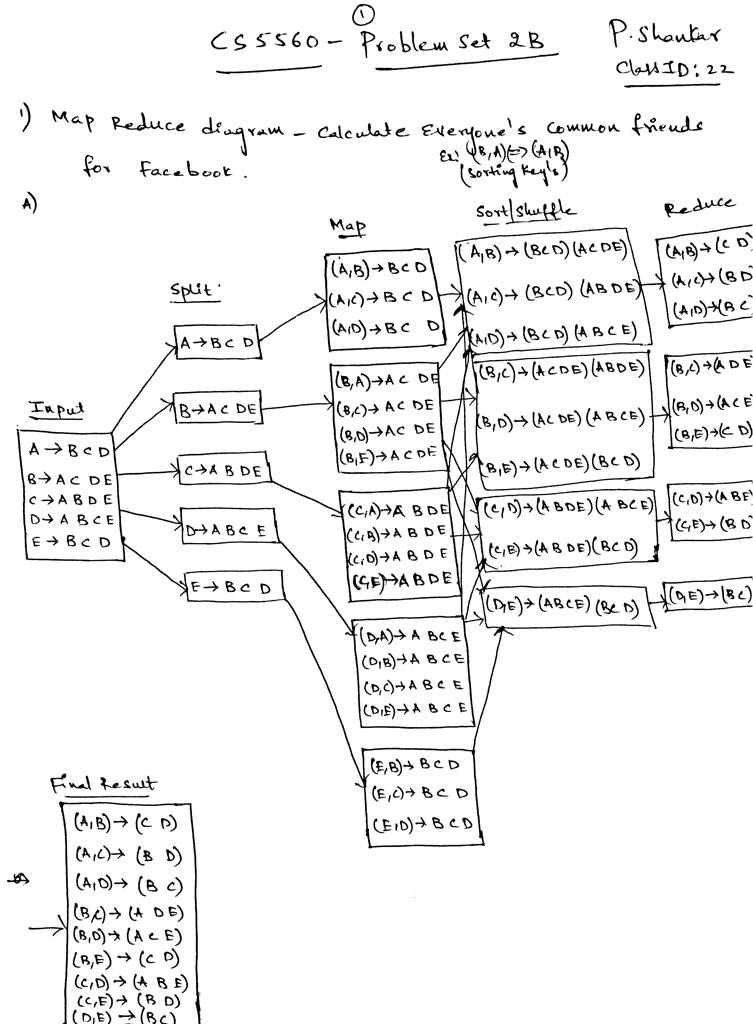 ①
CS5560 - Problem Set 2B
P. Shankar
Class ID: 22
1) Map Reduce diagram - Calculate Everyone's Common friends
for Facebook.
Ex: (B,A) <=> (A,B)
(Sorting Key's)
A)
Input
A → B C D
B → A C D E
C → A B D E
D → A B C E
E → B C D
Split:
A → B C D
B → A C D E
C → A B D E
D → A B C E
E → B C D
Map
(A,B) → B C D
(A,C) → B C D
(A,D) → B C D
(B,A) → A C D E
(B,C) → A C D E
(B,D) → A C D E
(B,E) → A C D E
(C,A) → A B D E
(C,B) → A B D E
(C,D) → A B D E
(C,E) → A B D E
(D,A) → A B C E
(D,B) → A B C E
(D,C) → A B C E
(D,E) → A B C E
(E,B) → B C D
(E,C) → B C D
(E,D) → B C D
Sort/Shuffle
(A,B) → (B C D) (A C D E)
(A,C) → (B C D) (A B D E)
(A,D) → (B C D) (A B C E)
(B,C) → (A C D E) (A B D E)
(B,D) → (A C D E) (A B C E)
(B,E) → (A C D E) (B C D)
(C,D) → (A B D E) (A B C E)
(C,E) → (A B D E) (B C D)
(D,E) → (A B C E) (B C D)
Reduce
(A,B) → (C D)
(A,C) → (B D
(A,D) → (B C
(B,C) → (A D E
(B,D) → (A C E
(B,E) → (C D)
(C,D) → (A B E
(C,E) → (B D
(D,E) → (B C)
Final Result
(A,B) → (C D)
(A,C) → (B D)
(A,D) → (B C)
(B,C) → (A D E)
(B,D) → (A C E)
(B,E) → (C D)
(C,D) → (A B E)
(C,E) → (B D)
(D,E) → (B C)